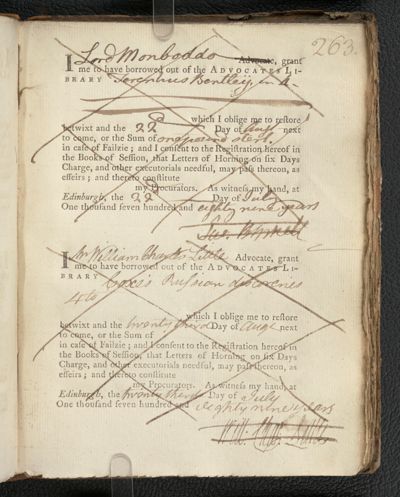 263.
I Lord Monboddo Advocate, grant
me to have borrowed out of the ADVOCATES LI-
BRARY Terentius Bentley in 4.
which I oblige me to restore
betwixt and the 22 Day of Augt next
to come, or the Sum of one pound sterl.
in case of Failzie; and I consent to the Registration hereof in
the Books of Session, that Letters of Horning on six Days
Charge, and other executorials needful, may pass thereon, as
effeirs; and thereto constitute
my Procurators. As witness my hand, at
Edinburgh, the 22 Day of July
One thousand seven hundred and eighty nine years
I Mr William Charles Little Advocate, grant
me to have borrowed out of the ADVOCATES LI-
BRARY Coxe's Russian discoveries
4to
which I oblige me to restore
betwixt and the twenty third Day of Augt next
to come, or the Sum of
in case of Failzie; and I consent to the Registration hereof in
the Books of Session, that Letters of Horning on six Days
Charge, and other executorials needful, may pass thereon, as
effeirs; and thereto constitute
my Procurators. As witness my hand, at
Edinburgh, the twenty third Day of July
One thousand seven hundred and eighty nine years